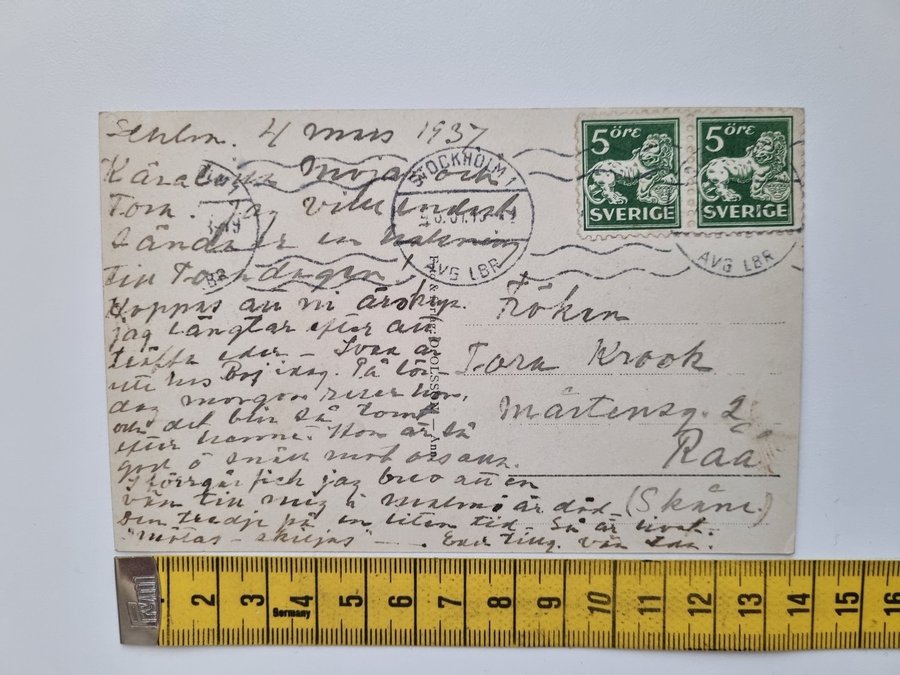 4 mars 1937
Kära Maja och
Tora. Jag vill endast
sända er en hälsning
till Toradagen
Hoppas att ni är
jag längtar efter att
träffa eder –
ute hos idag. På lör-
dag morgon reser hon,
och det blir så tomt
efter henne. Hon är så
god o snäll mot oss
I förrgår fick jag brev att en
vän till mig i Malmö är död –
den tredje på en liten tid – Så är livet.
"mötas – skiljas" – . vän
Fröken
Tora Krook
Mårtensg. 2
Råå
(Skåne.)
5 öre
SVERIGE
5 öre
SVERIGE
STOCKHOLM 1
AVG LBR
AVG LBR
2 3 4 5 6 7 8 9 10 11 12 13 14 15 16
Germany